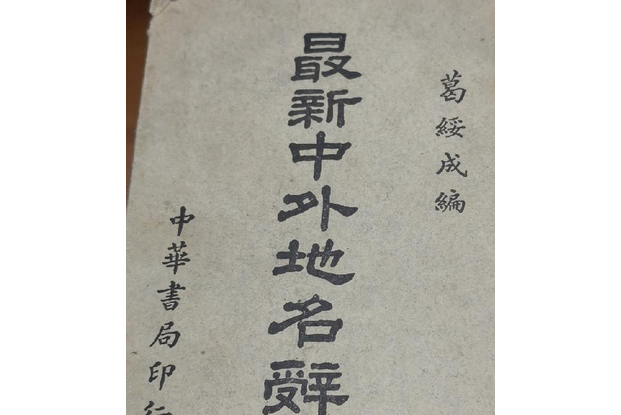 葛綏成編
最新中外地名辭
中華書局印行